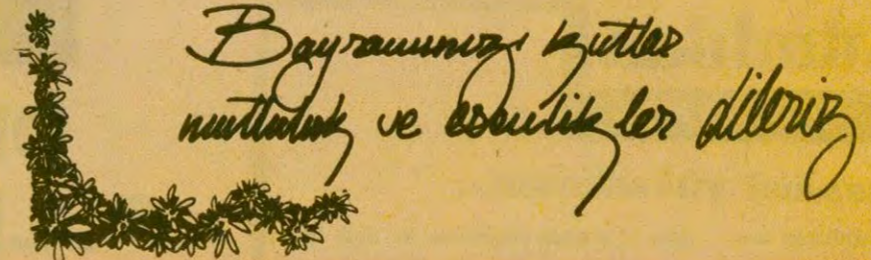 Bayramınızı kutlar
mutluluk ve esenlikler dileriz